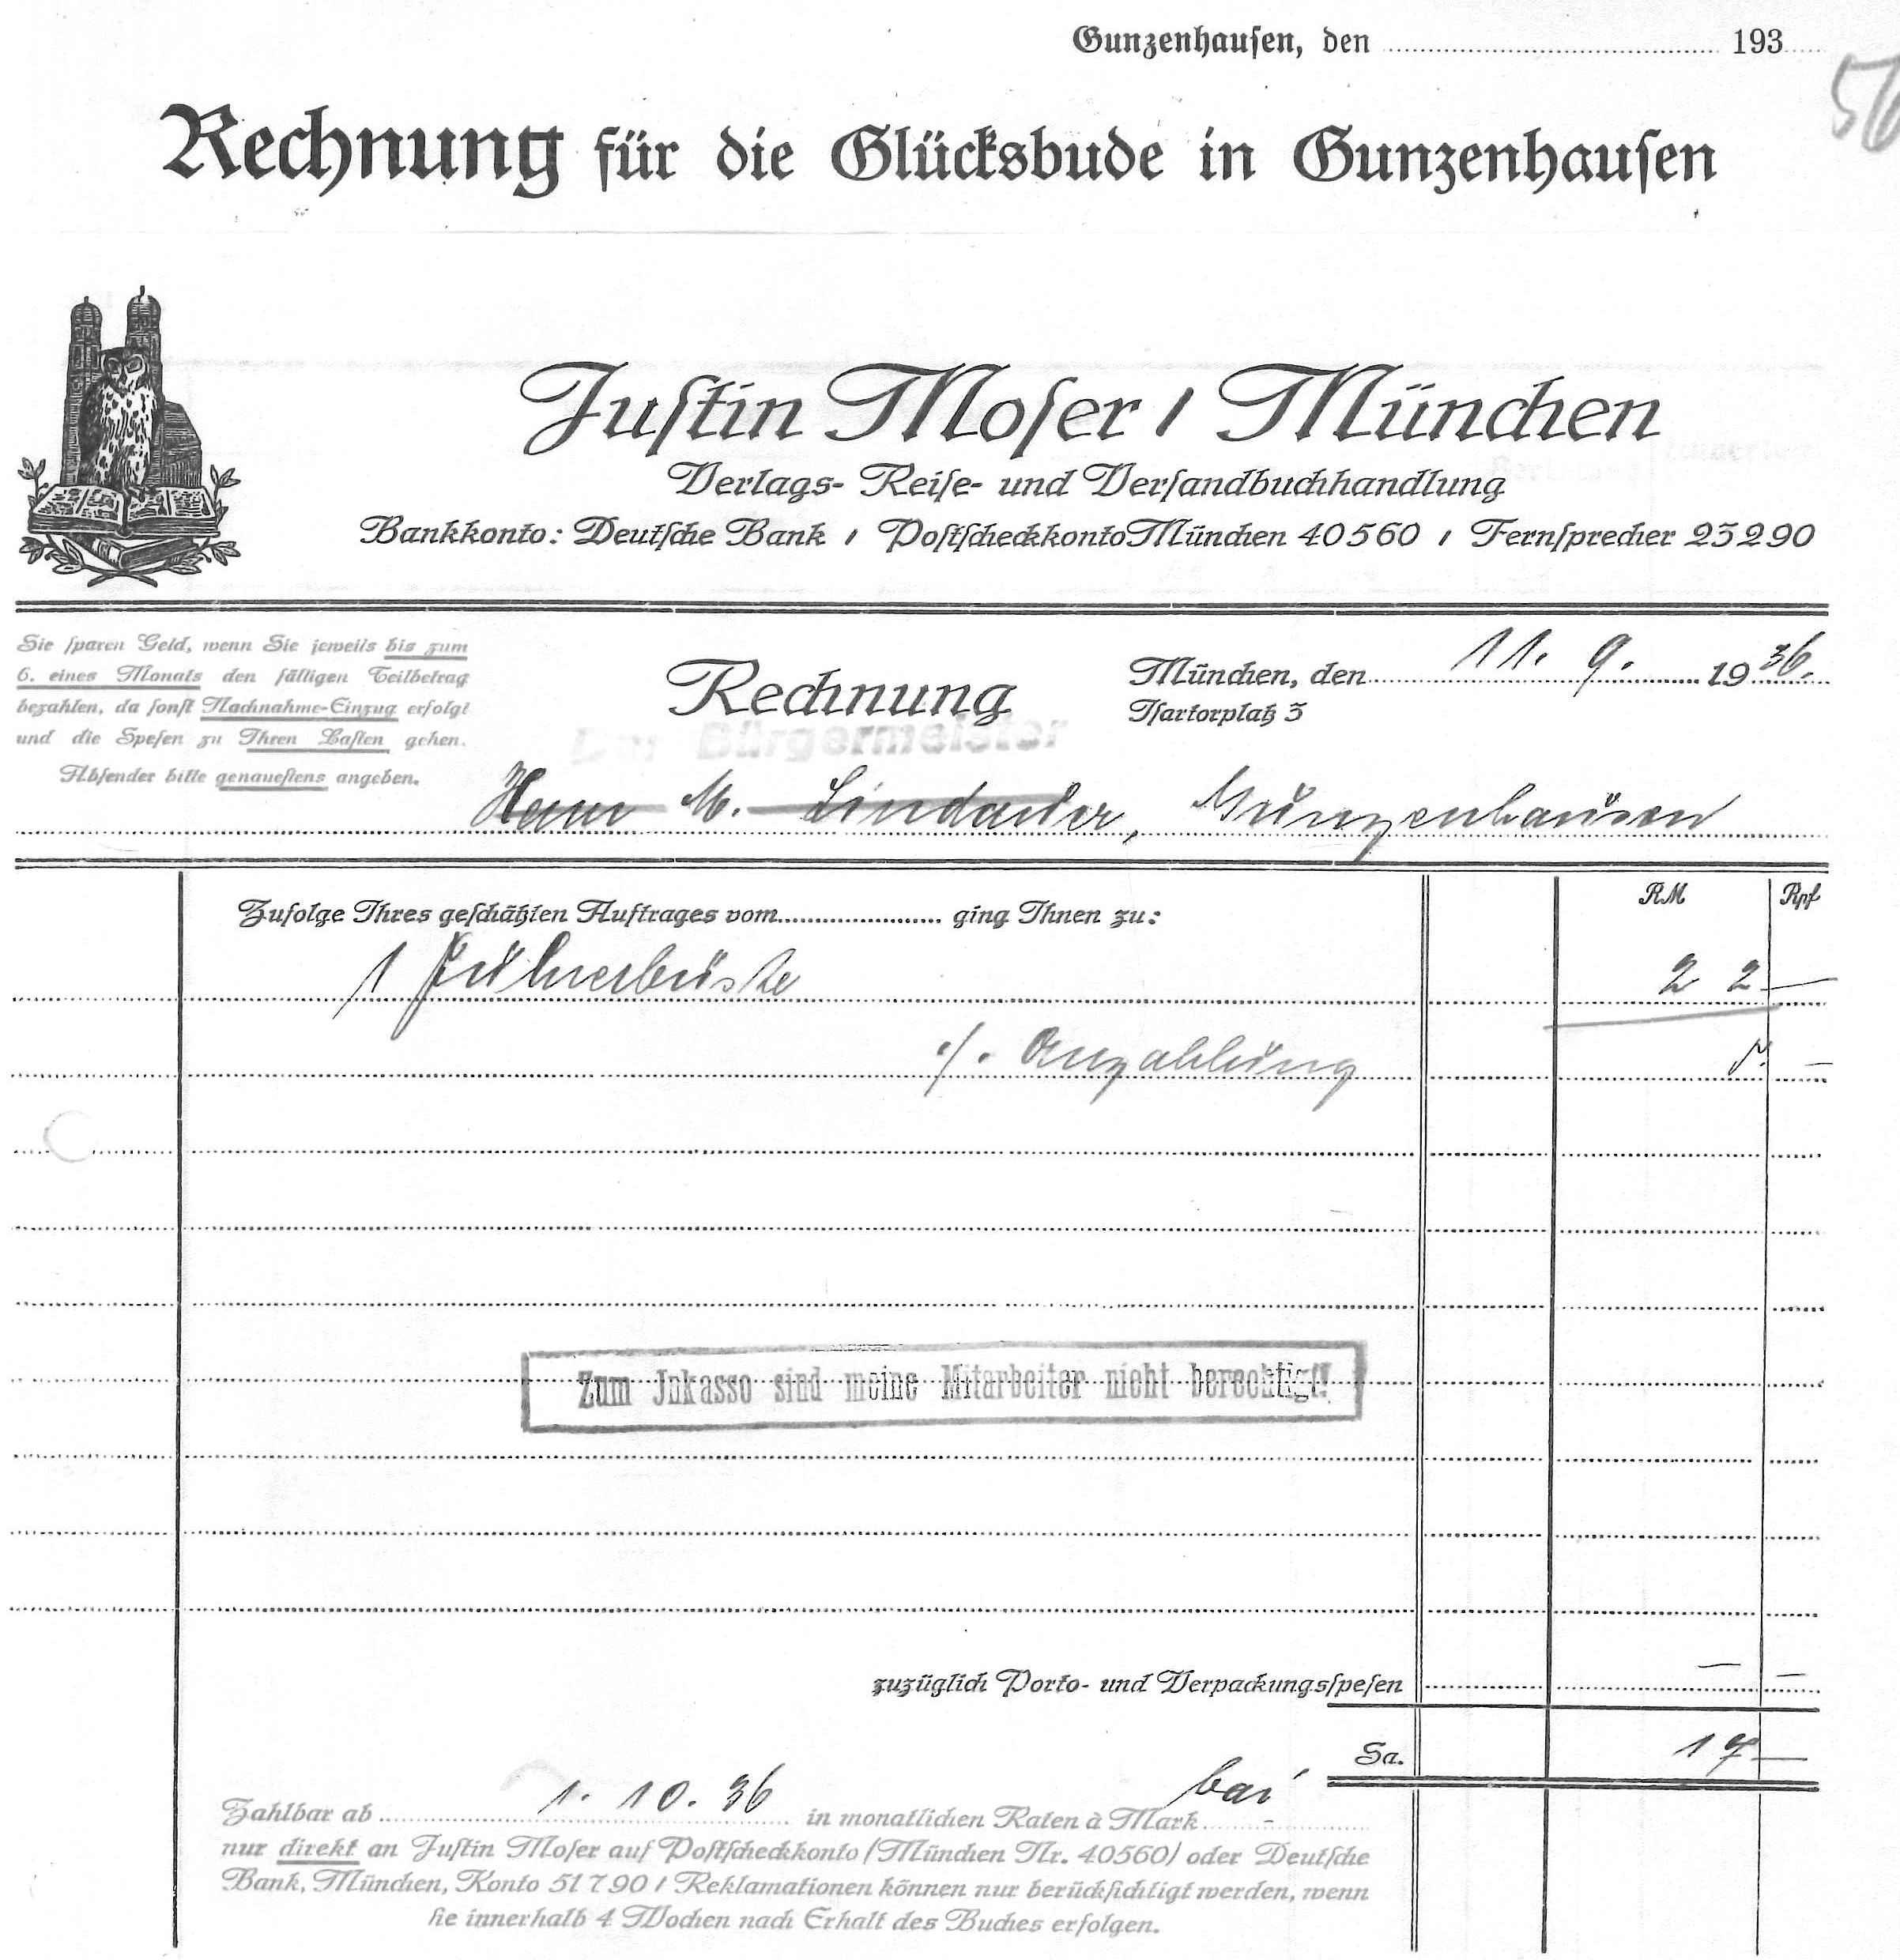 Gunzenhausen, den 193
Rechnung für die Glücksbude in Gunzenhausen
Justin Moser / München
Verlags- Reise- und Versandbuchhandlung
Bankkonto: Deutsche Bank / Postscheckkonto München 40560 / Fernsprecher 23290
Sie sparen Geld, wenn Sie jeweils bis zum
6. eines Monats den fälligen Teilbetrag
bezahlen, da sonst Nachnahme-Einzug erfolgt
und die Spesen zu Ihren Lasten gehen.
Absender bitte genauestens angeben.
Rechnung
München, den 11. 9. 1936.
Isartorplatz 3
Der Bürgermeister
Herrn M. Lindauer, Gunzenhausen
RM Rpf
Zufolge Ihres geschätzten Auftrages vom ging Ihnen zu:
1 Führerbüste 22 —
./. Anzahlung 5. —
Zum Inkasso sind meine Mitarbeiter nicht berechtigt!
zuzüglich Porto- und Verpackungsspesen — —
Sa. 17 —
Zahlbar ab 1. 10. 36 in monatlichen Raten à Mark bar
nur direkt an Justin Moser auf Postscheckkonto (München Nr. 40560) oder Deutsche
Bank, München, Konto 51790 / Reklamationen können nur berücksichtigt werden, wenn
sie innerhalb 4 Wochen nach Erhalt des Buches erfolgen.